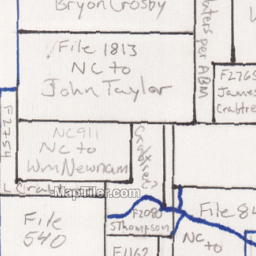 Bryon Crosby
File 1813
NC to
John Taylor
per ABM
F2765
James
Crabtree
F2754
NC911
NC to
Wm Newnam
Crabtree
MapTiler.com
File
540
F2080
SThompson
File 84
NC
to
F1162